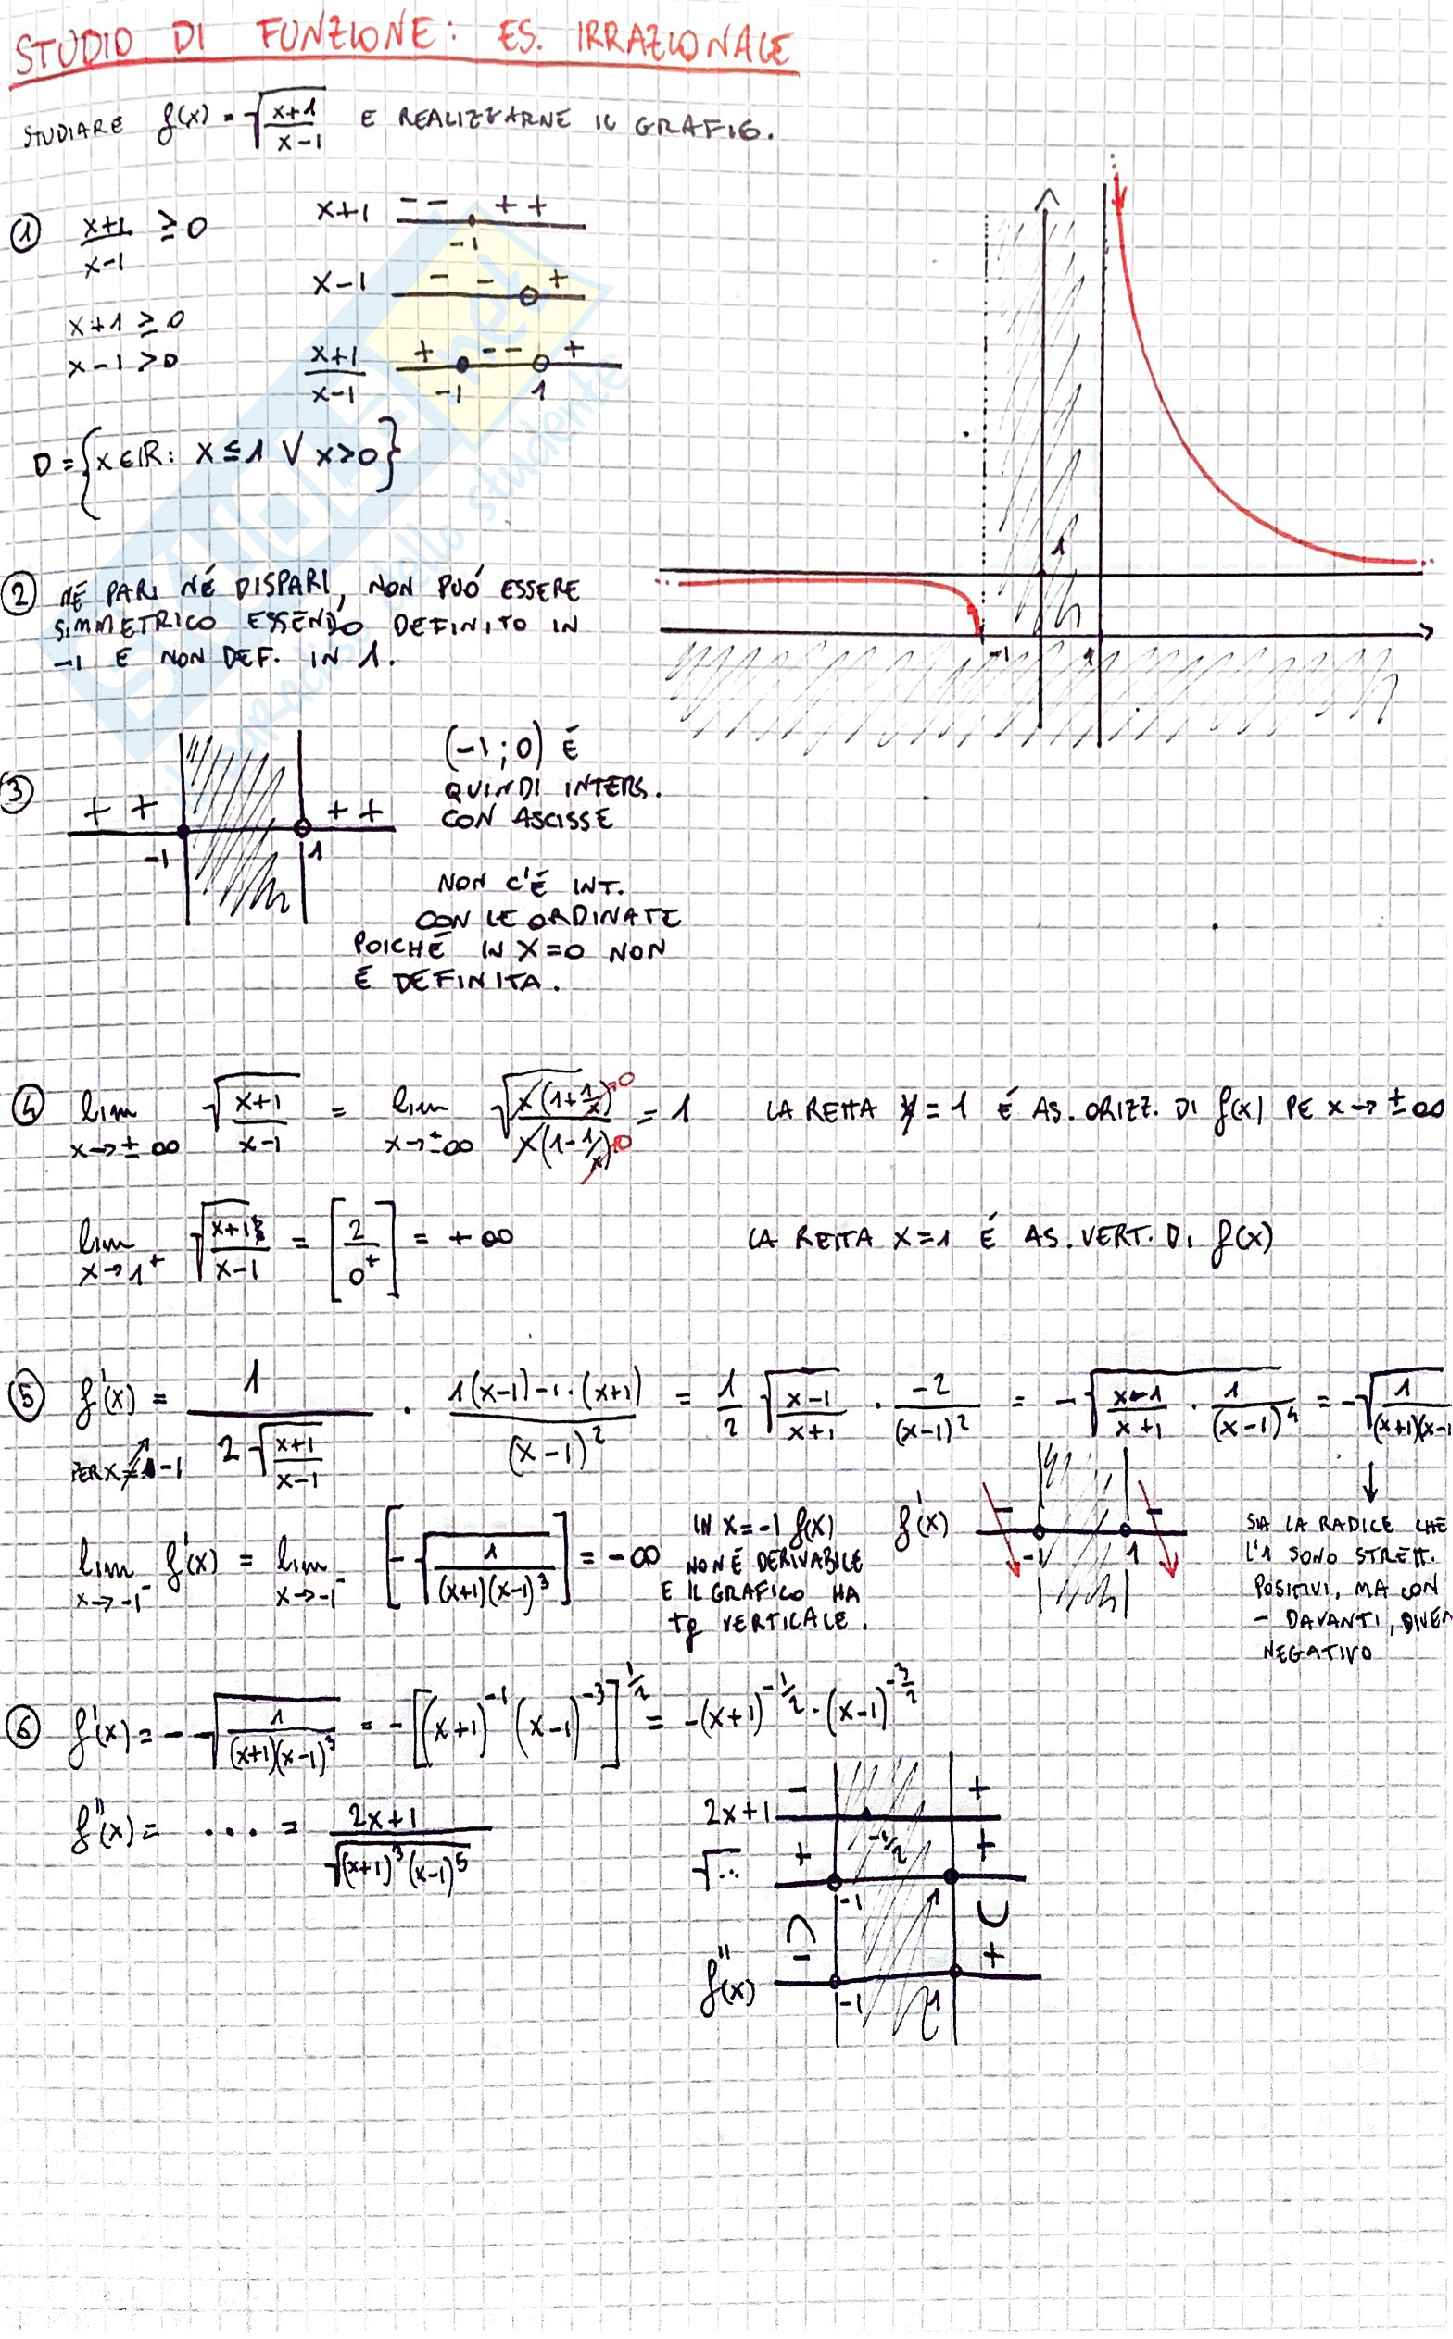 STUDIO DI FUNZIONE: ES. IRRAZIONALE
STUDIARE f(x) = √((x+1)/(x-1)) E REALIZZARNE IL GRAFICO.
① (x+1)/(x-1) ≥ 0
x+1 ≥ 0
x-1 > 0
x+1 -- ++
-1
x-1 - - +
(x+1)/(x-1) + -- +
-1 1
D = {x∈R: x ≤ 1 ∨ x>0}
1
-1 1
② NÉ PARI NÉ DISPARI, NON PUÓ ESSERE
SIMMETRICO ESSENDO DEFINITO IN
-1 E NON DEF. IN 1.
③ + + + +
-1 1
(-1;0) É
QUINDI INTERS.
CON ASCISSE
NON C'É INT.
CON LE ORDINATE
POICHÉ IN X=0 NON
É DEFINITA.
④ lim x→±∞ √((x+1)/(x-1)) = lim x→±∞ √(x(1+1/x)/x(1-1/x)) = 1 LA RETTA y=1 É AS. ORIZZ. DI f(x) PE x→±∞
0
0
lim x→1⁺ √((x+1)/(x-1)) = [2/0⁺] = +∞ LA RETTA X=1 É AS. VERT. DI f(x)
⑤ f'(x) = 1/(2√((x+1)/(x-1))) · (1(x-1)-1·(x+1))/(x-1)² = 1/2 √((x-1)/(x+1)) · -2/(x-1)² = -√((x-1)/(x+1) · 1/(x-1)⁴) = -√(1/((x+1)(x-1
PER X≠-1
lim x→-1⁻ f'(x) = lim x→-1⁻ [-√(1/((x+1)(x-1)³))] = -∞
IN X=-1 f(x)
NON É DERIVABILE
E IL GRAFICO HA
tg VERTICALE.
f'(x) - -
-1 1
SIA LA RADICE CHE
L'1 SONO STRETT.
POSITIVI, MA CON
- DAVANTI, DIVEN
NEGATIVO
⑥ f'(x) = -√(1/((x+1)(x-1)³)) = -[(x+1)⁻¹(x-1)⁻³]^(1/2) = -(x+1)^(-1/2) · (x-1)^(-3/2)
f''(x) = ... = (2x+1)/√((x+1)³(x-1)⁵)
2x+1 - +
-1/2
√.. + +
-1 1
f''(x) - +
-1 1